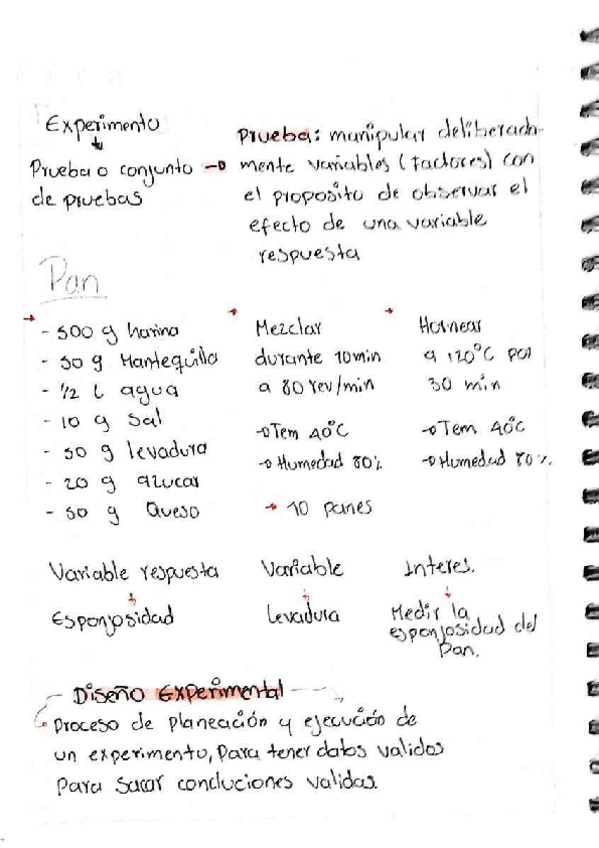 Experimento
Prueba o conjunto
de pruebas
Prueba: manipular deliberada-
mente variables (factores) con
el proposito de observar el
efecto de una variable
respuesta
Pan
- 500 g harina
- 50 g Mantequilla
- 1/2 L agua
- 10 g Sal
- 50 g levadura
- 20 g azucar
- 50 g Queso
Mezclar
durante 10min
a 80 rev/min
→ Tem 40°C
→ Humedad 80%
→ 10 panes
Hornear
a 120°C por
30 min
→ Tem 40°C
→ Humedad 80%.
Variable respuesta
Esponjosidad
Variable
Levadura
Interes.
Medir la
esponjosidad del
Pan.
Diseño Experimental
Proceso de planeación y ejecución de
un experimento, Para tener datos validos
Para sacar concluciones validas.